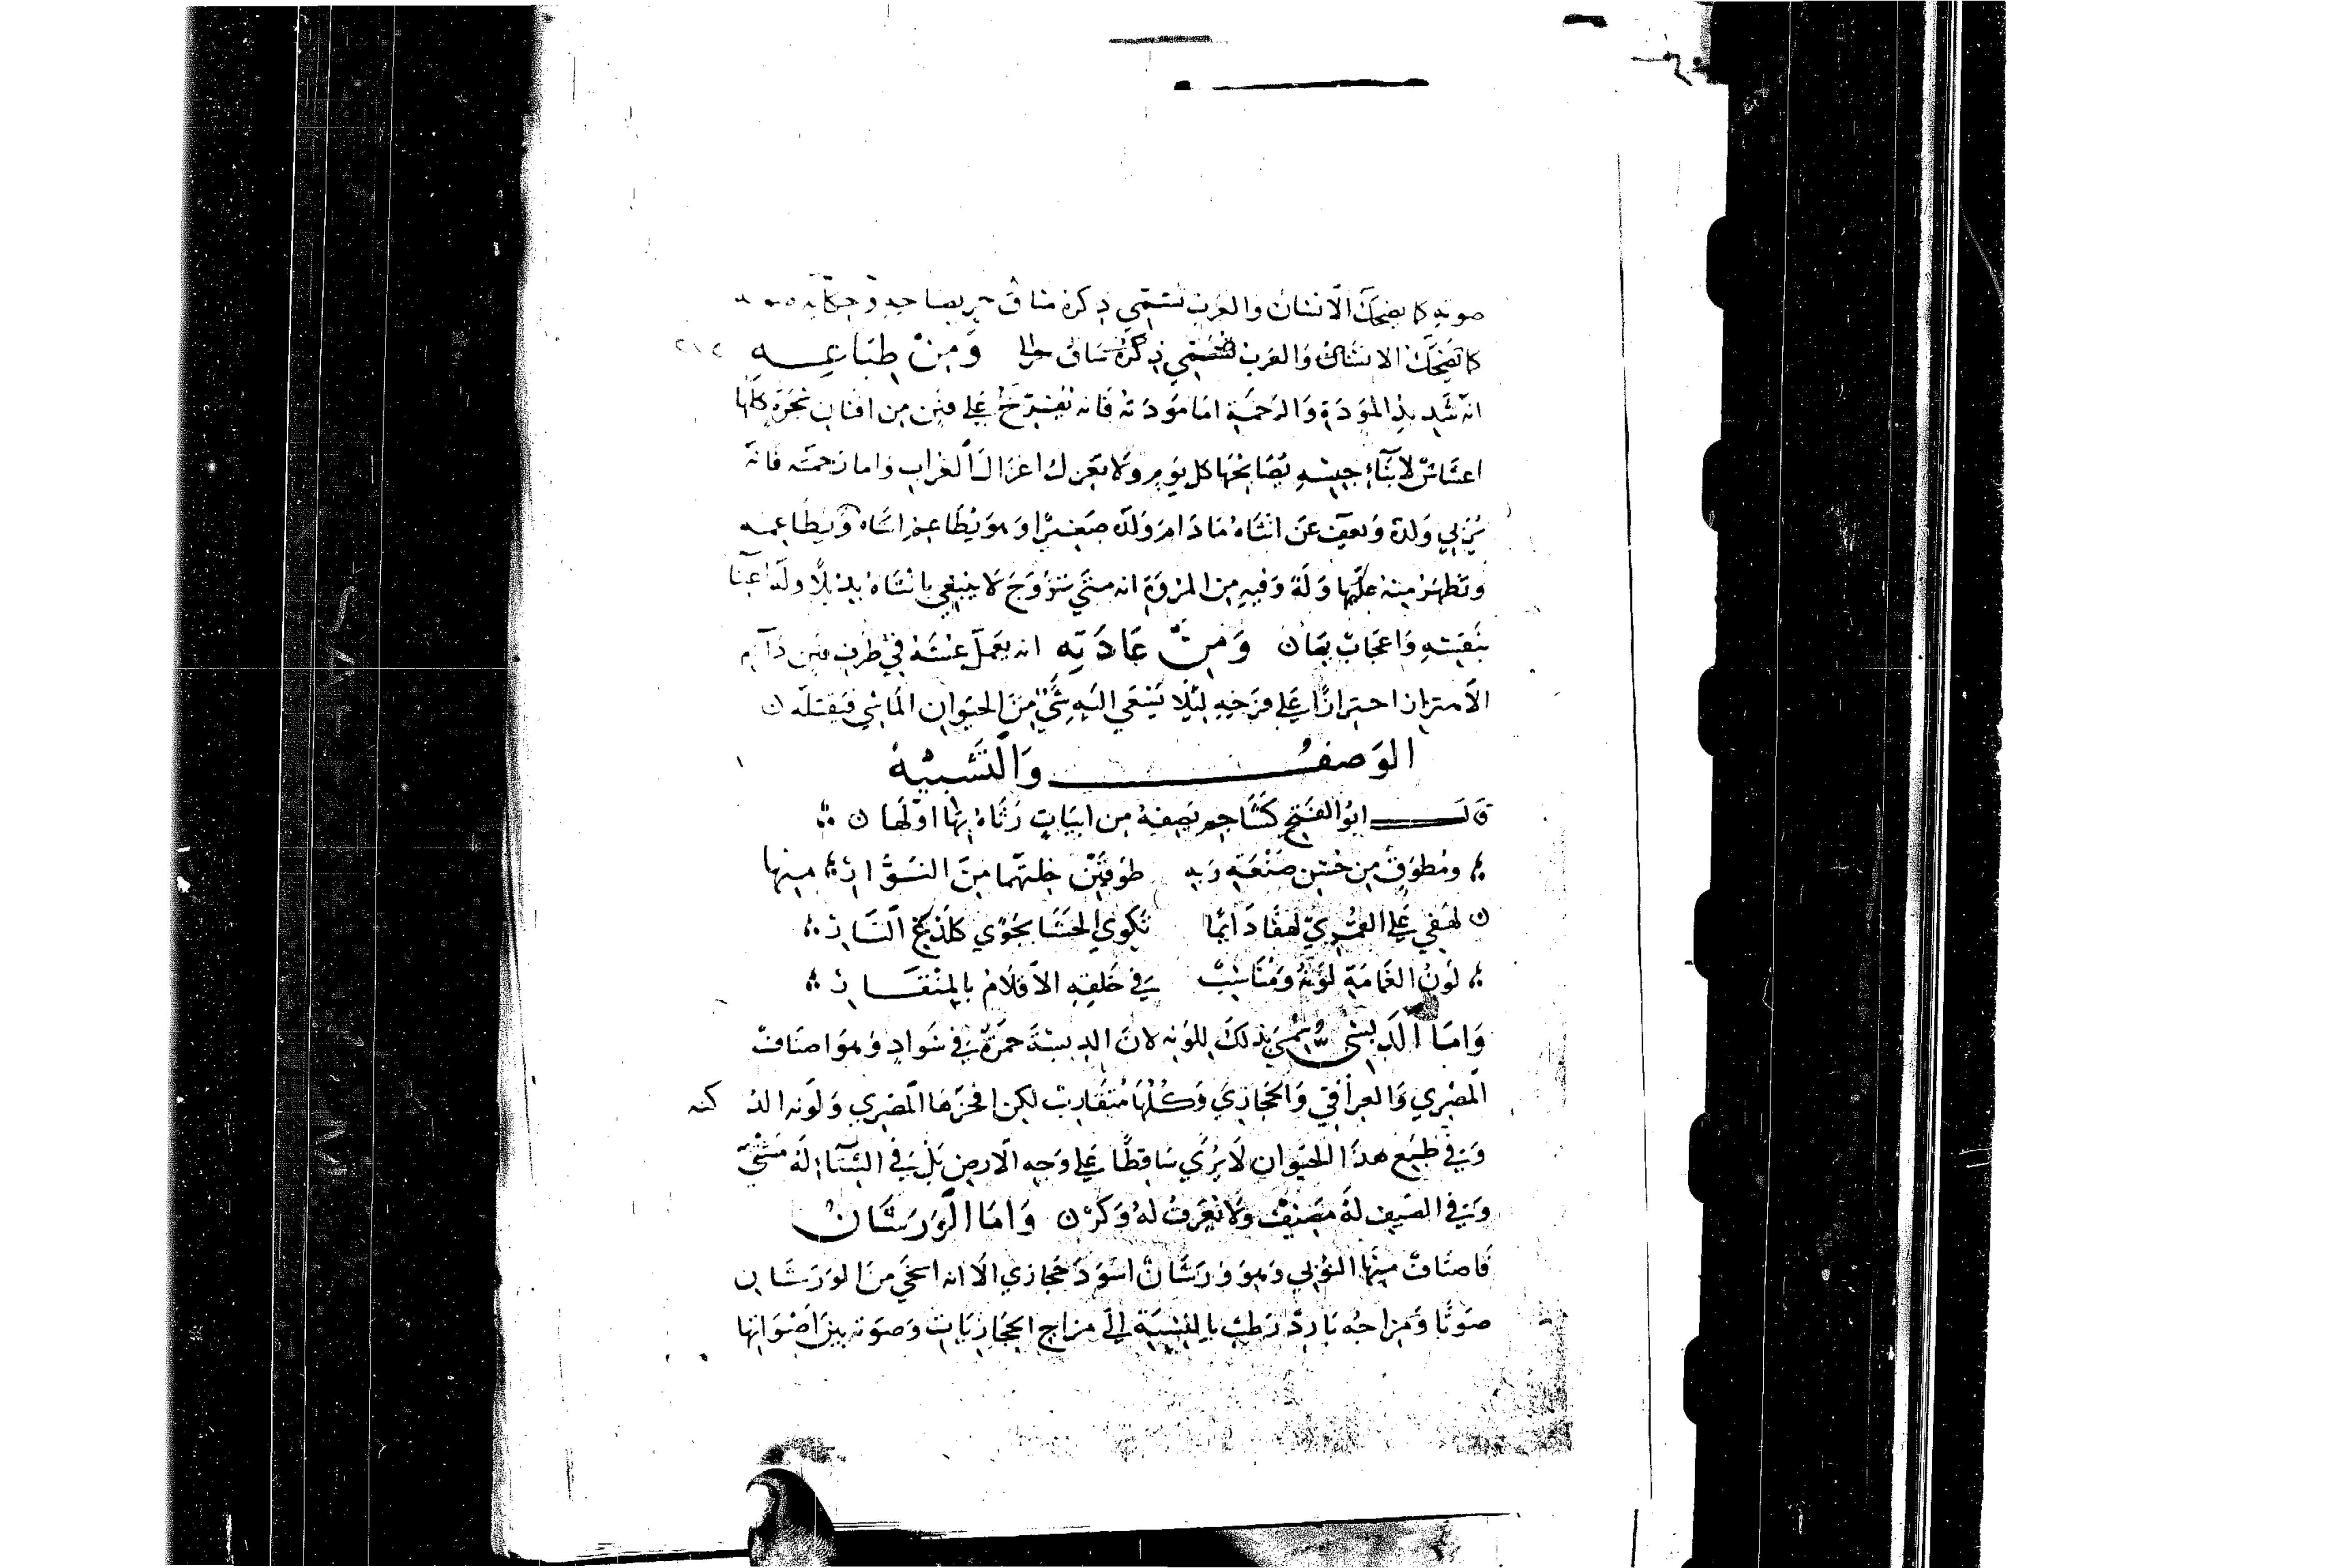 صوته كما يضحك الانسان والعرب تسمي ذكره ساق حر
كما يضحك الانسان والعرب تسمي ذكره ساق حرا وَمِنْ طِبَاعِــه
انه شديد المودة والرحمة اما مودته فانه يفرخ على فنن من افنان شجرة كلها
اعشاش لابناء جنسه يصابحها كل يوم ولا يعتزل اعتزال الغراب واما رحمته فانه
يربي ولده ويعف عن انثاه ما دام ولده صغيرا وهو
وتظهر منه عليها وله وفيه من المروة انه متى تزوج لا يبتغي بانثاه بديلا وله
بنفسه واعجاب بها ن وَمِنْ عَادَتِه انه يعمل عشه في طرف فنن دآيم
الاهتزاز احترازا على فرخه ليلا يسعى اليه شي من الحيوان الماشي فيقتله ن
الوَصفُ وَالتَّشبيْهُ
قالــــ ابو الفتح كشاجم يصفه من ابيات رثاه بها اولها ن
ومطوق من حسن صنعة ربه طوقين خلتهما من النوار منها
ن لهفي على القمري لهفا دايما تكوي الحشا بجوي كلذع النار
لون الغمامة لونه ومناسب في خلقه الاقلام بالمنقار
وَامَا الدبسي سمي بذلك للونه لان الدبسة حمرة في سواد وهو اصناف
المصري والعراقي والحجازي وكلها متقارب لكن افخرها المصري ولونه الدكنه
وفي طبع هذا الحيوان لا يرى ساقطا على وجه الارض بل في الشتاء له مشتى
وفي الصيف له مصيف ولا نعرف له وكر ن وَامَا الوَرَشَانُ
فاصناف منها النوبي وهو ورشان اسود حجازي الا انه اشجى من الورشان
صوتا ومزاجه بارد رطب بالنسبة الى مزاج الحجازيات وصوته بين اصواتها